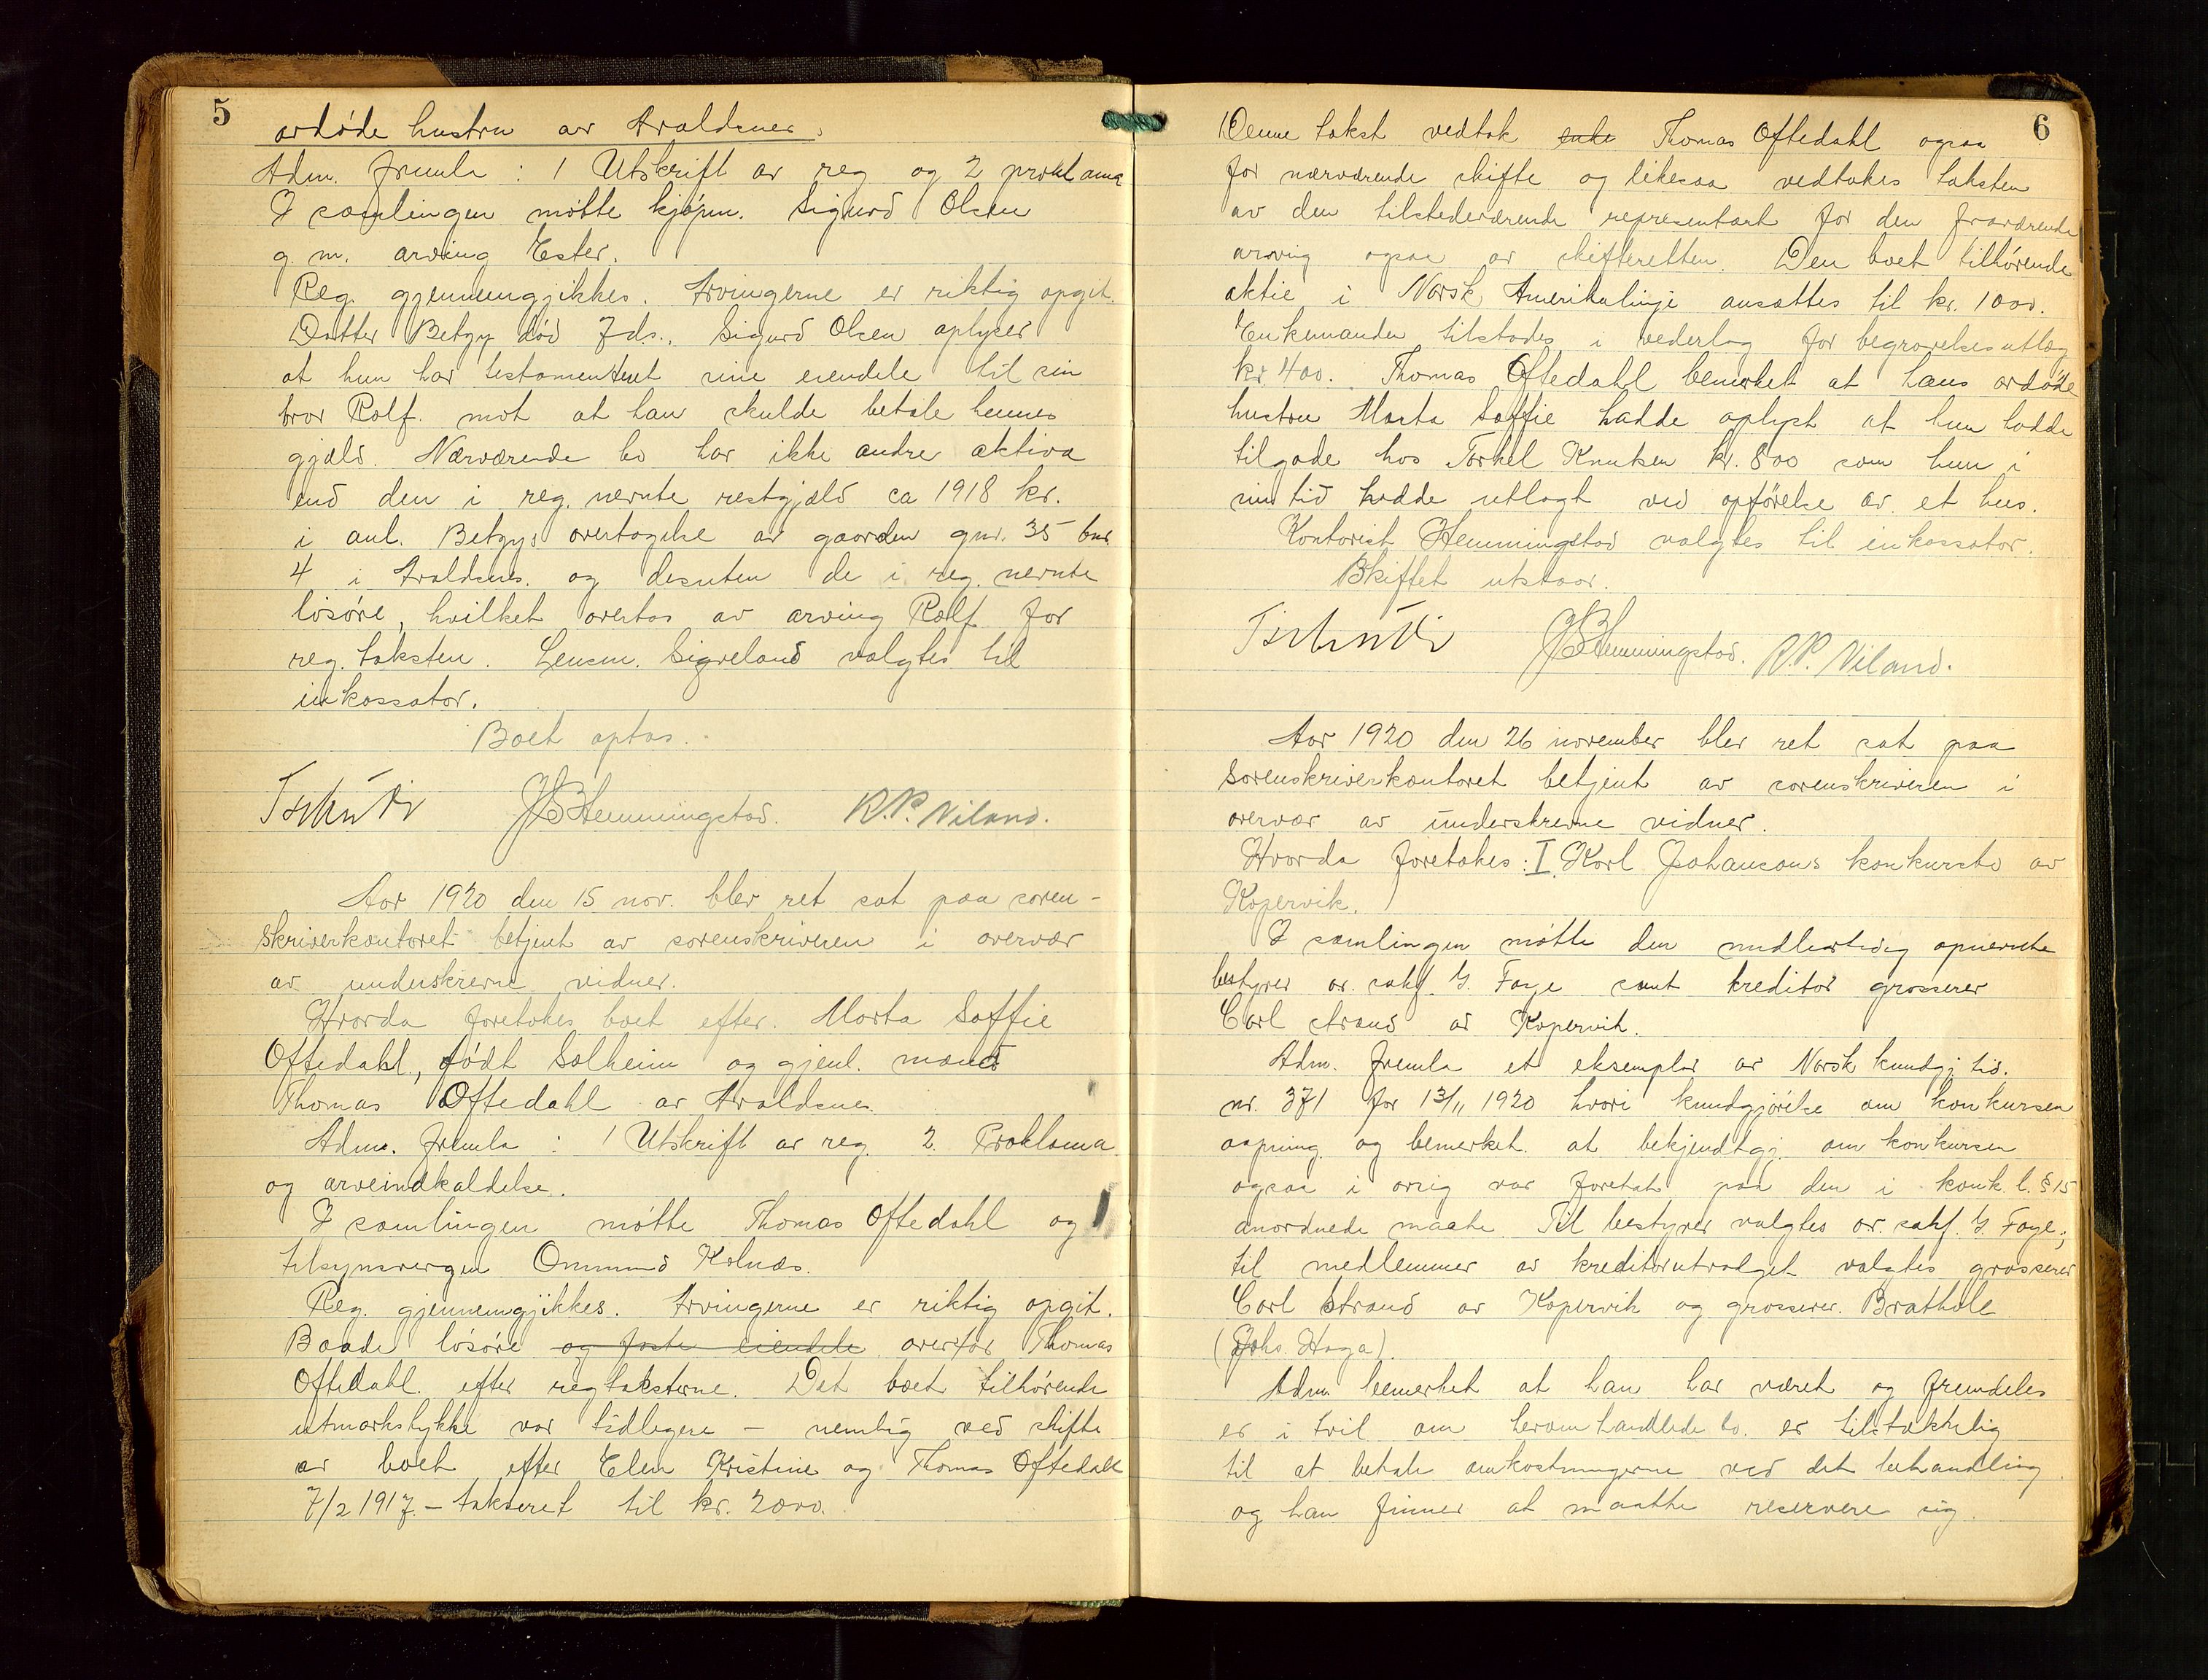 5
avdøde hustru av Avaldsnes.
Adm. fremla : 1 Utskrift av reg og 2 proklama
I samlingen møtte kjøpm. Sigurd Olsen
g. m. arving Ester.
Reg. gjennemgikkes. Arvingerne er riktig opgit.
Datter Betzy død 7 ds.. Sigurd Olsen oplyser
at hun har testamentert sine eiendele til sin
bror Rolf. mot at han skulde betale hennes
gjæld. Nærværende bo har ikke andre aktiva
end den i reg. nevnte restgjæld ca 1918 kr.
i anl. Betzys overtagelse av gaarden gnr. 35 bnr.
4 i Avaldsnes. og desuten de i reg. nevnte
løsøre, hvilket overtas av arving Rolf for
reg. taksten. Lensm. Sigveland valgtes til
inkassator.
Boet optas.
J B Hemmingstad. R. P. Niland.
Aar 1920 den 15 nov. blev ret sat paa soren-
skriverkontoret betjent av sorenskriveren i overvær
av underskrevne vidner.
Hvorda foretokes boet efter. Marta Soffie
Oftedahl., født Solheim og gjenl. mand
Thomas Oftedahl av Avaldsnes.
Adm. fremla : 1 Utskrift av reg. 2. Proklama
og arveindkaldelse.
I samlingen møtte Thomas Oftedahl og
tilsynsvergen Ommund Kolnæs.
Reg. gjennemgikkes. Arvingerne er riktig opgit.
Baade løsøre og faste eiendele overtar Thomas
Oftedahl. efter regtaksterne. Det boet tilhørende
utmarkstykke var tidligere – nemlig ved skifte
av boet efter Elen Kristine og Thomas Oftedahl
7/2 1917. – taksert til kr. 2000.
6
Denne takst vedtok enke Thomas Oftedahl ogsaa
for nærværende skifte og likesaa vedtokes taksten
av den tilstedeværende representant for den fraværende
arving ogsaa av skifteretten. Den boet tilhørende
aktie i Norsk Amerikalinje ansattes til kr. 1000.
Enkemanden tilstodes i vederlag for begravelsesutlæg
kr. 400. Thomas Oftedahl bemerket at hans avdøde
hustru Marta Soffie hadde oplyst at hun hadde
tilgode hos Torkel Knutsen kr. 800 som hun i
sin tid hadde utlagt ved opførelse av et hus.
Kontorist Hemmingstad valgtes til inkassator.
Skiftet utstaar.
J B Hemmingstad. R. P. Niland.
Aar 1920 den 26 november blev ret sat paa
sorenskriverkontoret betjent av sorenskriveren i
overvær av underskrevne vidner.
Hvorda foretokes: I. Karl Johansons konkursbo av
Kopervik.
I samlingen møtte den midlertidig opnævnte
bestyrer or. sakf. G. Faye samt kreditor grosserer
Carl Strand av Kopervik.
Adm. fremla et eksemplar av Norsk kundgj. tid.
nr. 371 for 13/11 1920 hvori kundgjørelse om konkursen
aapning og bemerket. at bekjendtgj. om konkursen
ogsaa i øvrig var foretat paa den i konk. l. § 15
anordnede maate. Til bestyrer valgtes or. sakf. G. Faye;
til medlemmer av kreditorutvalget valgtes grosserer
Carl Strand av Kopervik og grosserer. Brathole
(Johs. Haga).
Adm. bemerket at han har været og fremdeles
er i tvil om heromhandlede bo. er tilstrækkelig
til at betale omkostningerne ved det behandling
og han finner at maatte reservere sig.